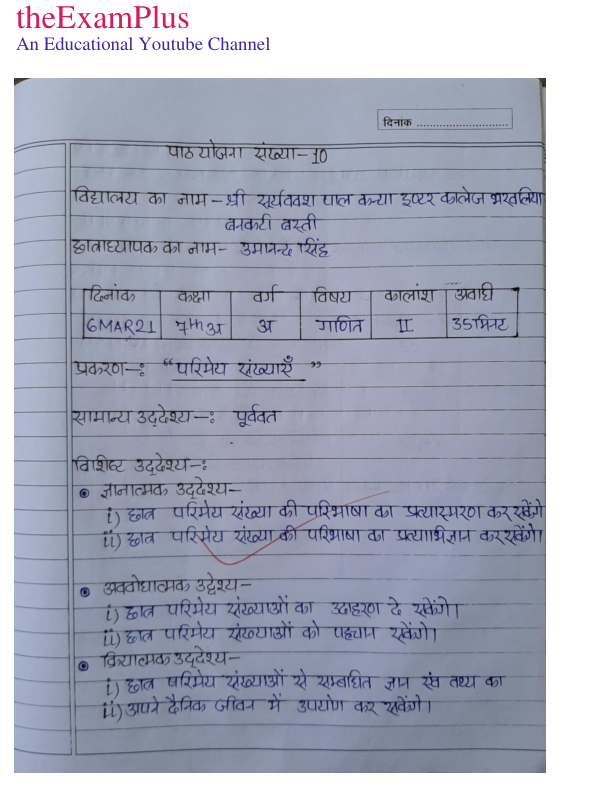 theExamPlus
An Educational Youtube Channel
दिनांक ..............................
पाठ योजना संख्या-10
विद्यालय का नाम - श्री सूर्यवंश पाल कन्या इण्टर कालेज भरवलिया
बनकटी बस्ती
छात्राध्यापक का नाम- उमानन्द सिंह
दिनांक कक्षा वर्ग विषय कालांश अवधि
6MAR21 7th अ अ गणित II 35मिनट
प्रकरण-: "परिमेय संख्याएँ"
सामान्य उद्देश्य-: पूर्ववत
विशिष्ट उद्देश्य-:
ज्ञानात्मक उद्देश्य-
i) छात्र परिमेय संख्या की परिभाषा का प्रत्यास्मरण कर सकेंगे
ii) छात्र परिमेय संख्या की परिभाषा का प्रत्याभिज्ञान कर सकेंगे।
अवबोधात्मक उद्देश्य-
i) छात्र परिमेय संख्याओं का उदाहरण दे सकेंगे।
ii) छात्र परिमेय संख्याओं को पहचान सकेंगे।
क्रियात्मक उद्देश्य-
i) छात्र परिमेय संख्याओं से सम्बन्धित ज्ञान एवं तथ्य का
ii) अपने दैनिक जीवन में उपयोग कर सकेंगे।